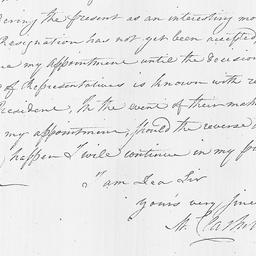 ering the present as an interesting mo
Resignation has not yet been accepted
e my appointment until the decision
of Representatives is known with re
President, In the event of their mak
my appointment, should the reverse
happen I will continue in my fo
I am Dea Sir
Yours very since